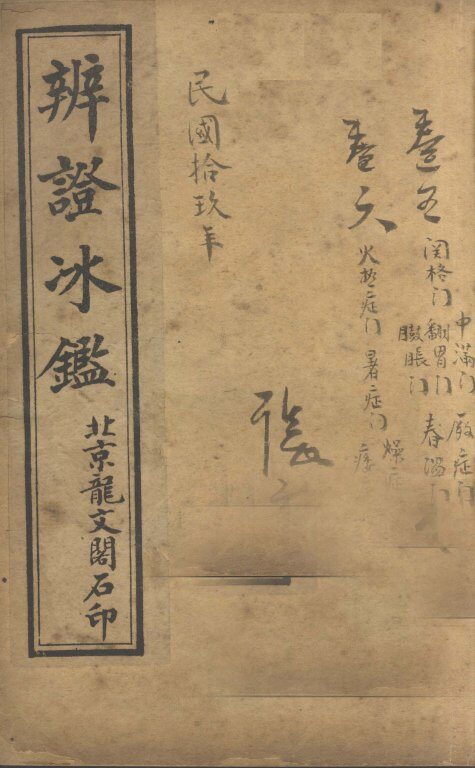 卷五
関格门
中滿门
厥症门
翻胃门
春溫门
臌脹门
卷六
火热症门
暑症门
燥症
痿
張
民國拾玖年
辨證冰鑑
北京龍文閣石印